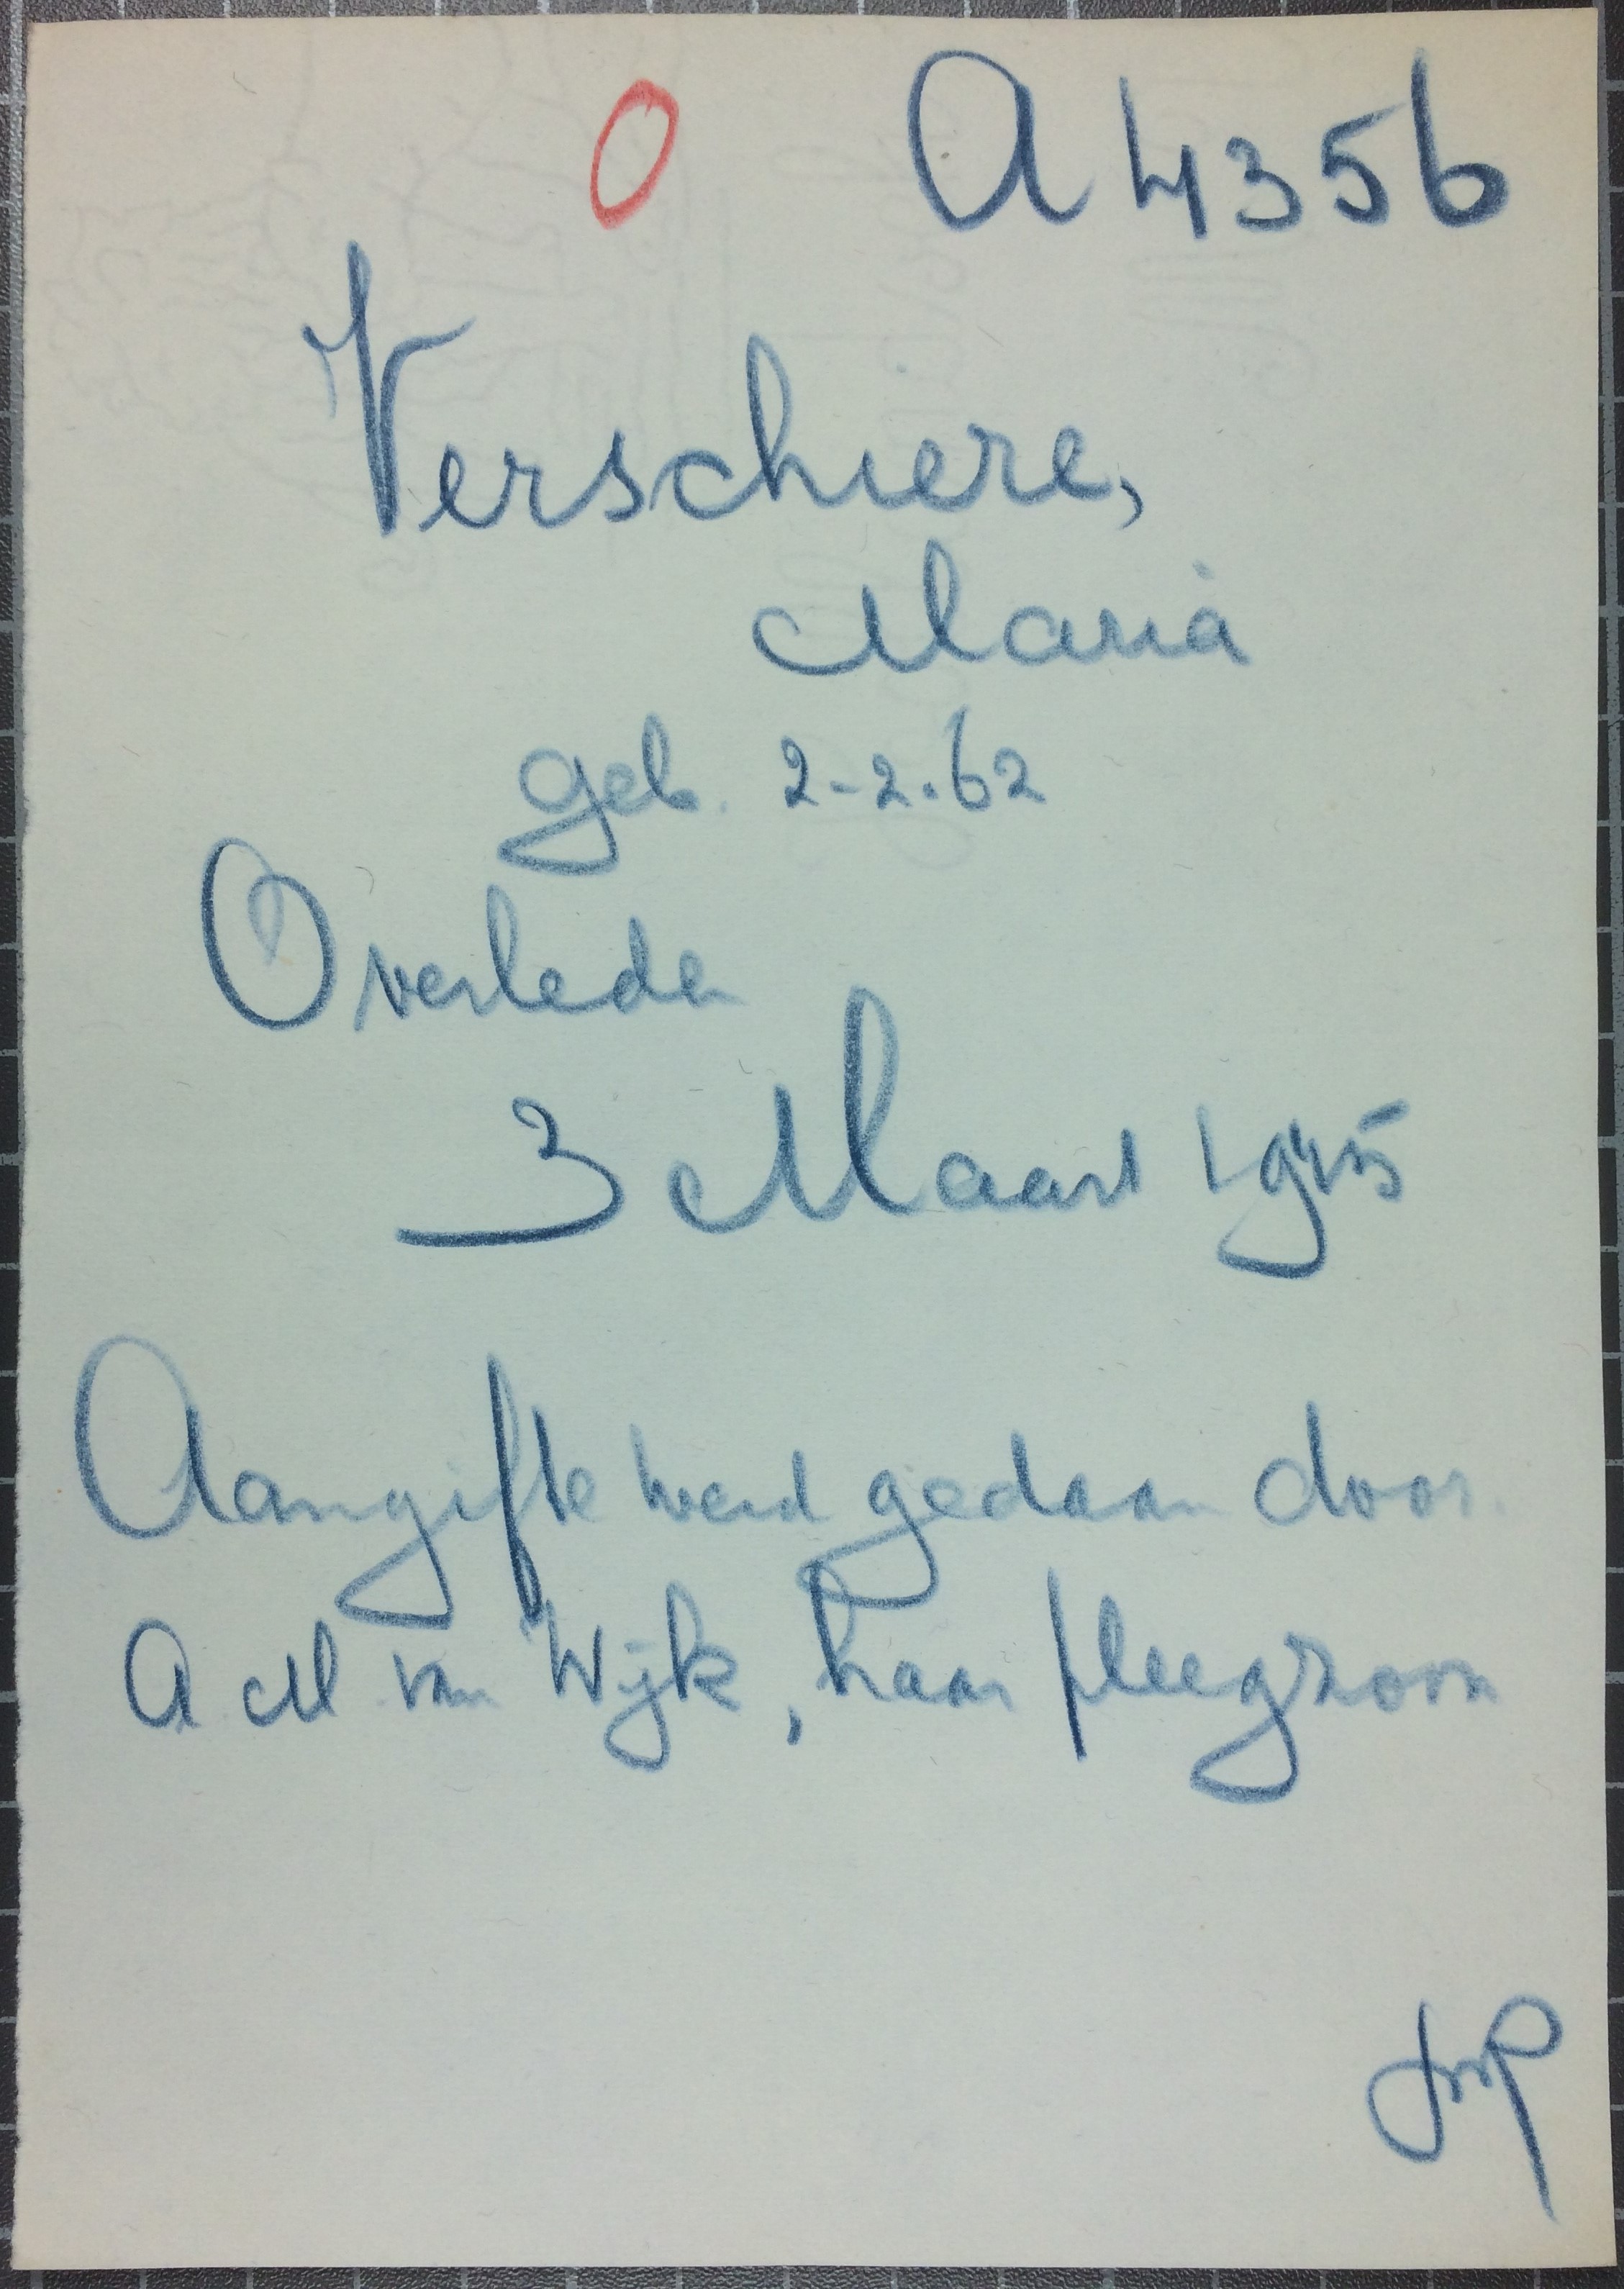 O A 4356
Verschiere,
Maria
geb. 2-2-62
Overleden
3 Maart 1945
Aangifte werd gedaan door
A M van Wijk, haar pleegzoon